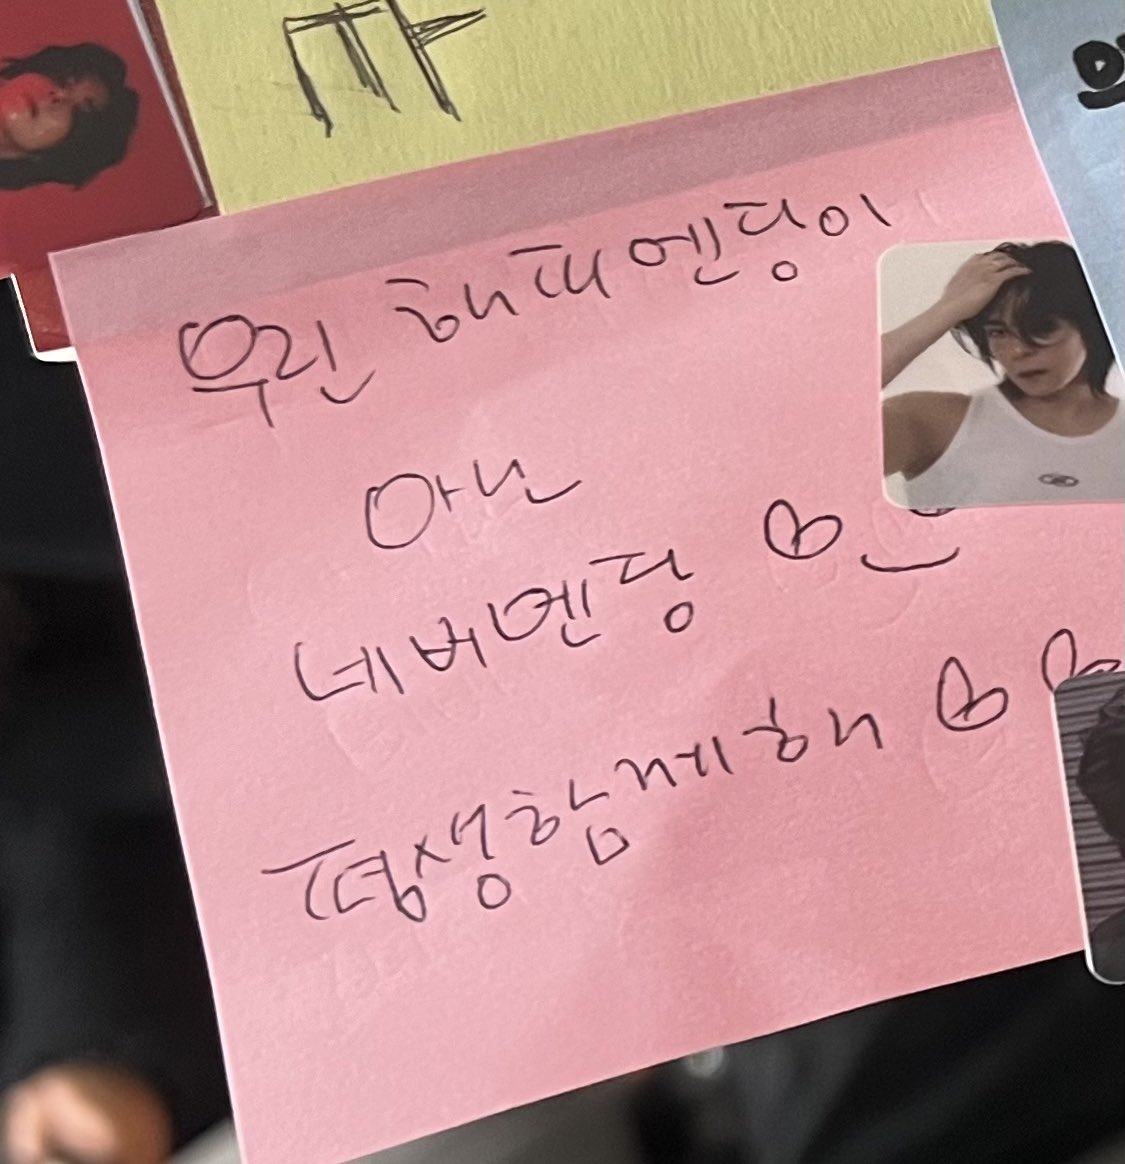 까
우린 해피엔딩이
아닌
네버엔딩 ♡
평생함께해 ♡♡